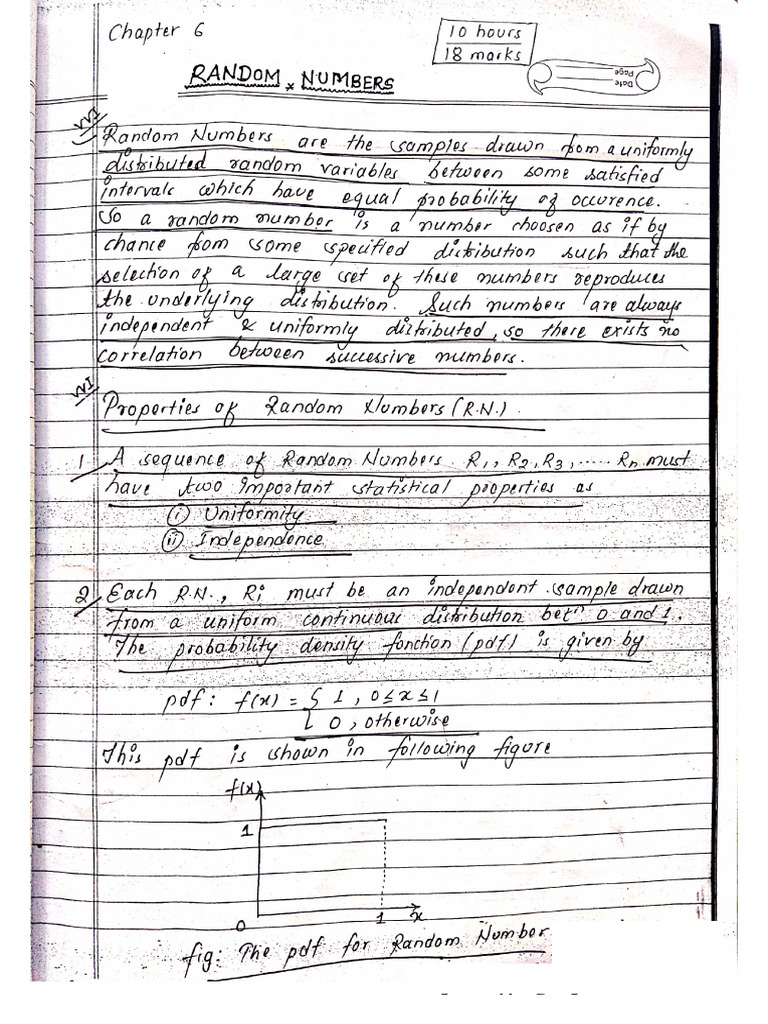 Chapter 6
10 hours
18 marks
Date
Page
RANDOM NUMBERS
VVI
Random Numbers are the samples drawn from a uniformly
distributed random variables between some satisfied
intervals which have equal probability of occurence.
So a random number is a number choosen as if by
chance from some specified distribution such that the
selection of a large set of these numbers reproduces
the underlying distribution. Such numbers are always
independent & uniformly distributed, so there exists no
correlation between successive numbers.
VVI
Properties of Random Numbers (R.N.)
1 A sequence of Random Numbers R1, R2, R3, ..... Rn must
have two important statistical properties as
(i) Uniformity
(ii) Independence
2 Each R.N., Ri must be an independent sample drawn
from a uniform continuous distribution betn 0 and 1.
The probability density fonction (pdf) is given by
pdf: f(x) = { 1, 0≤x≤1
0, otherwise
This pdf is shown in following figure
f(x)
1
0 1 x
fig: The pdf for Random Number